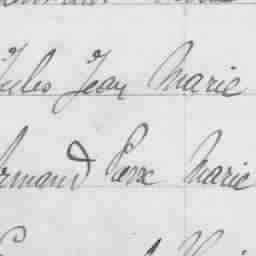 Jules Jean Marie
Armand Pierre Marie